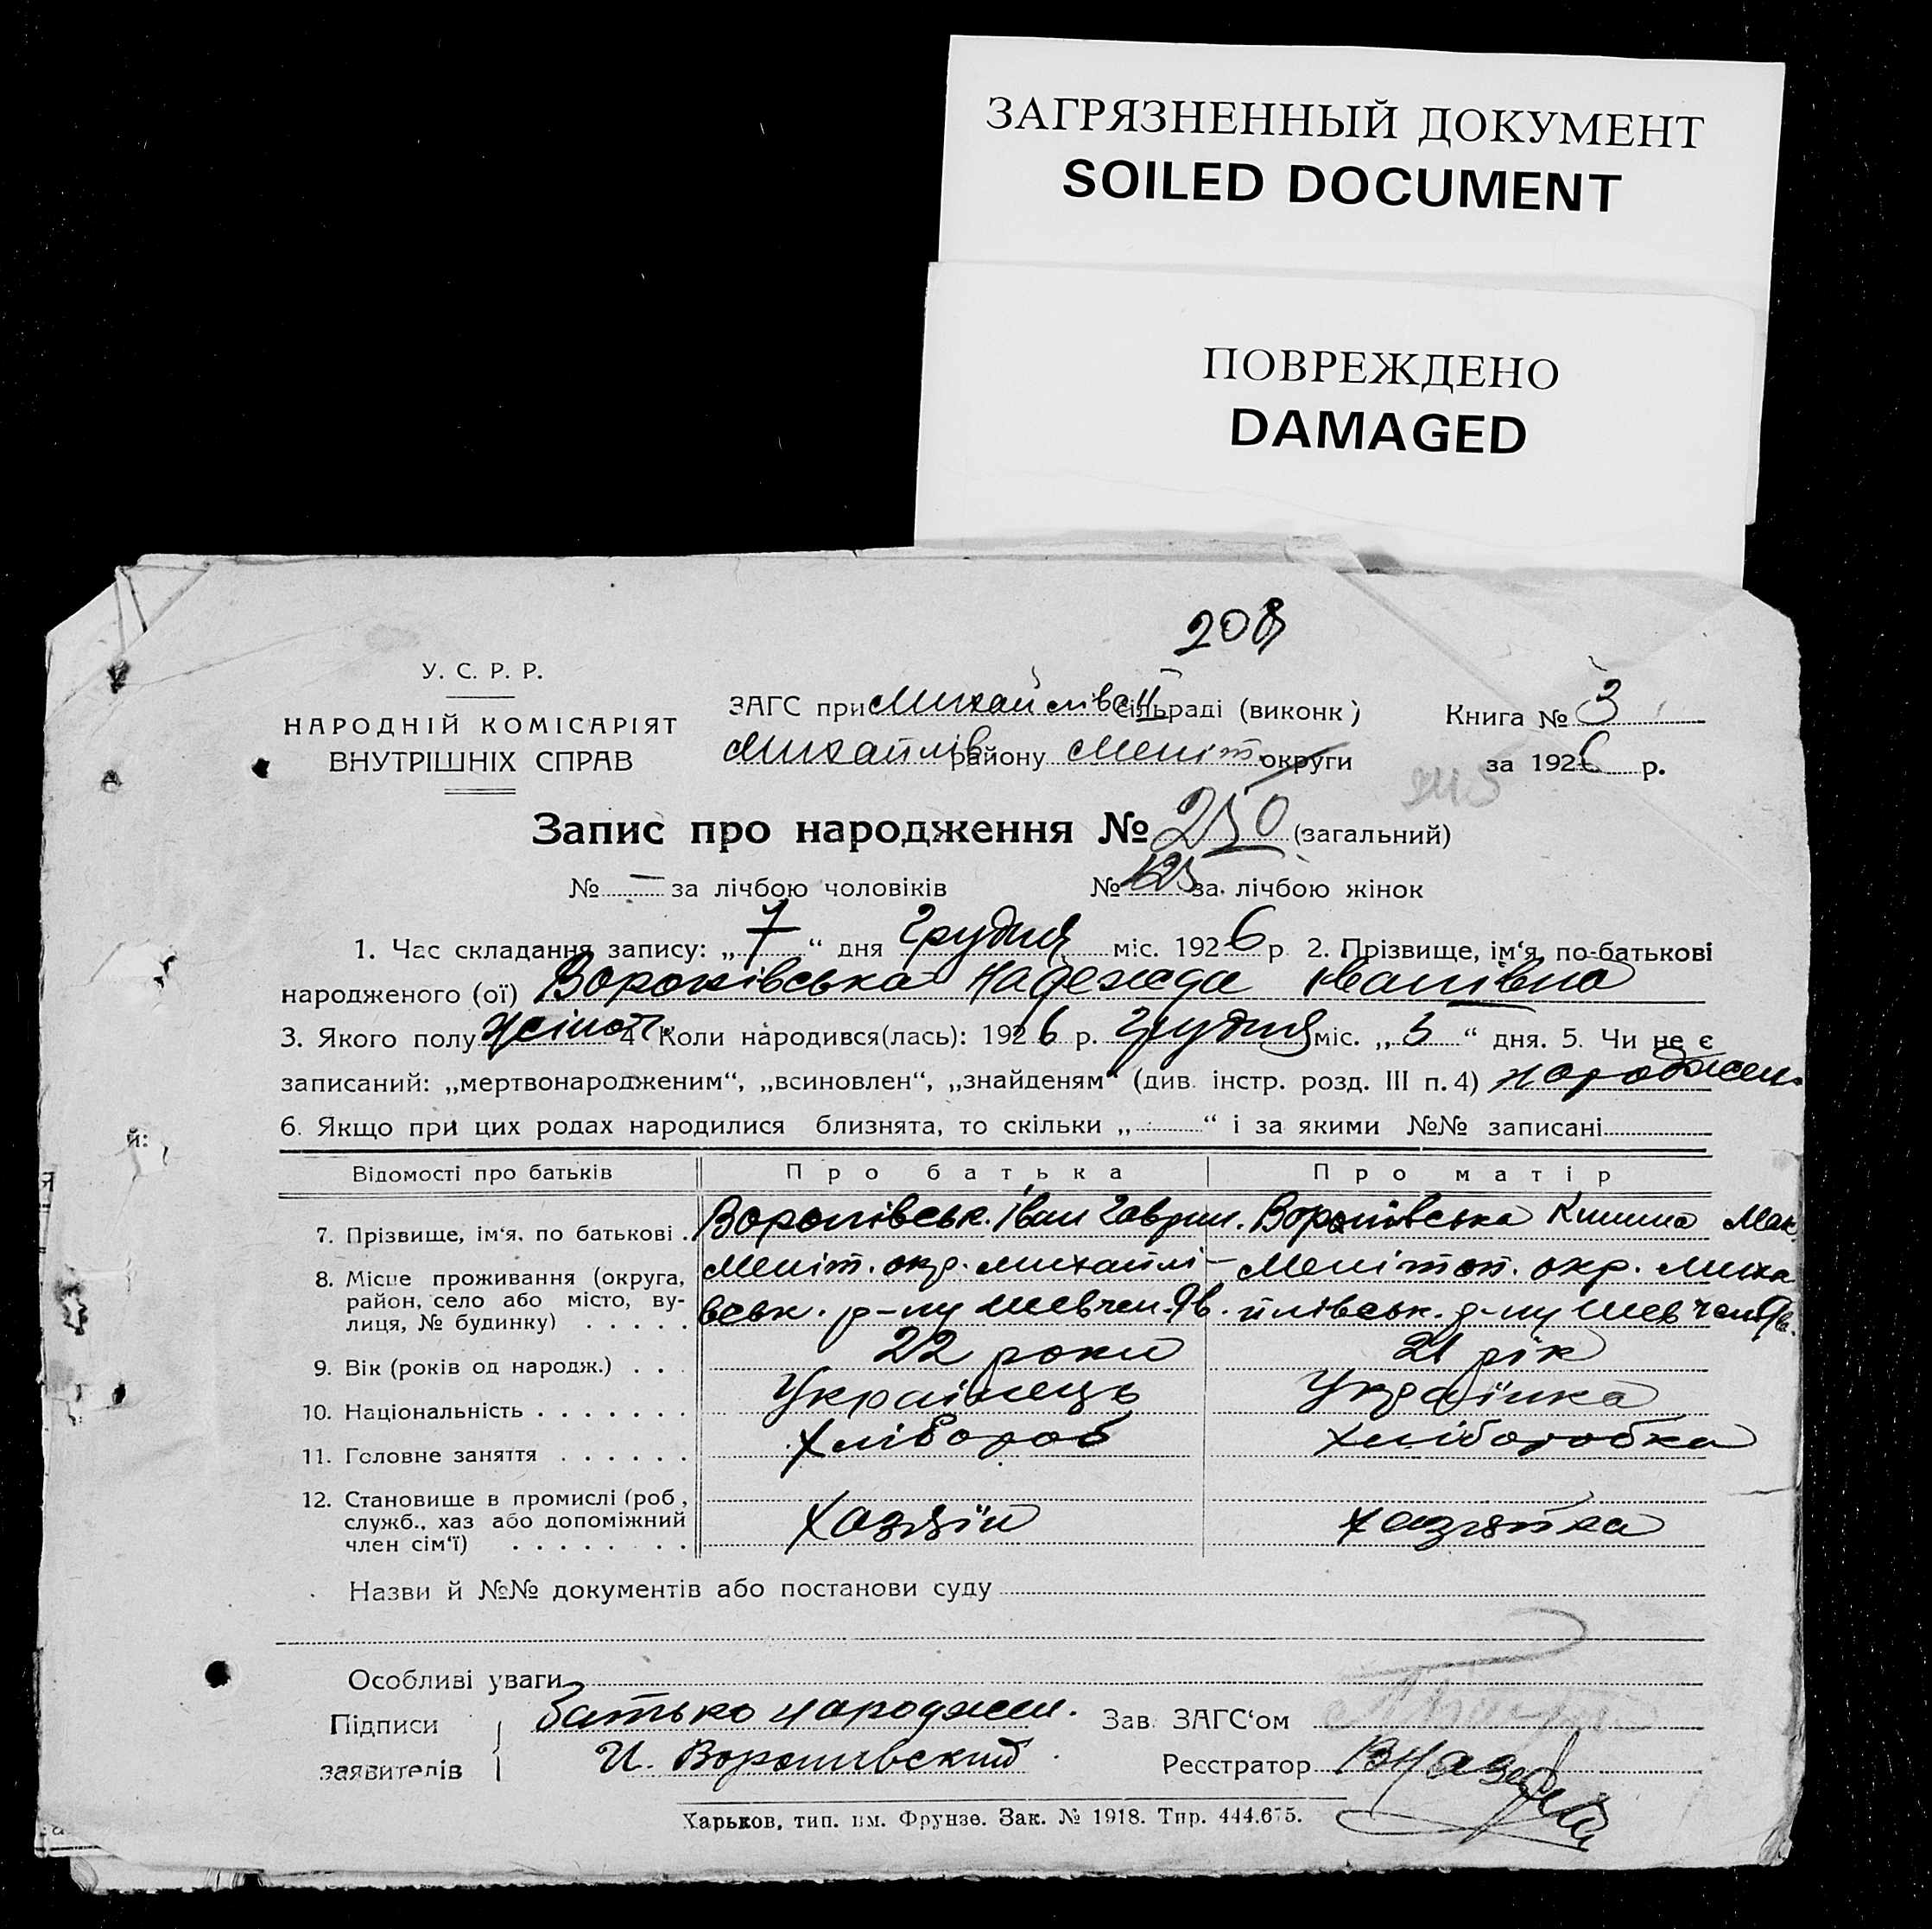 ЗАГРЯЗНЕННЫЙ ДОКУМЕНТ
SOILED DOCUMENT
ПОВРЕЖДЕНО
DAMAGED
208
У. С. Р. Р.
НАРОДНІЙ КОМІСАРІЯТ
ВНУТРІШНІХ СПРАВ
ЗАГС при Михайлівській сільраді (виконк)
Михайлів району Меліт. округи
Книга № 3
за 1926 р.
Запис про народження № 250 (загальний)
№ — за лічбою чоловіків № 125 за лічбою жінок
1. Час складання запису: „7“ дня Грудня міс. 1926 р. 2. Прізвище, ім‘я, по-батькові
народженого (ої) Надежда Іванівна
3. Якого полу жіноч. 4 Коли народився(лась): 1926 р. Грудня міс. „5“ дня. 5. Чи не є
записаний: „мертвонародженим“, „всиновлен“, „знайденям“ (див. інстр. розд. III п. 4) народжен.
6. Якщо при цих родах народилися близнята, то скільки „ “ і за якими №№ записані
Відомості про батьків Про батька Про матір
7. Прізвище, ім‘я, по батькові . Іван Гаврил. Мак.
8. Місце проживання (округа, район, село або місто, ву-лиця, № будинку) . . . . .
Меліт. окр. Михайлі-
вськ. р-ну Шевчен.
Мелітоп. окр. Миха
йлівськ. р-ну Шевчен.
9. Вік (років од народж.) . . . 22 роки 21 рік
10. Національність . . . . . . . Українець Українка
11. Головне заняття . . . . . . Хлібороб Хліборобка
12. Становище в промислі (роб,
служб., хаз або допоміжний
член сім‘ї) . . . . . . . .
Хазяїн Хазяйка
Назви й №№ документів або постанови суду
Особливі уваги
Підписи
заявителів
Батько народжен.
И.
Зав. ЗАГС‘ом
Реєстратор
Харьков, тип. им. Фрунзе. Зак. № 1918. Тир. 444.675.